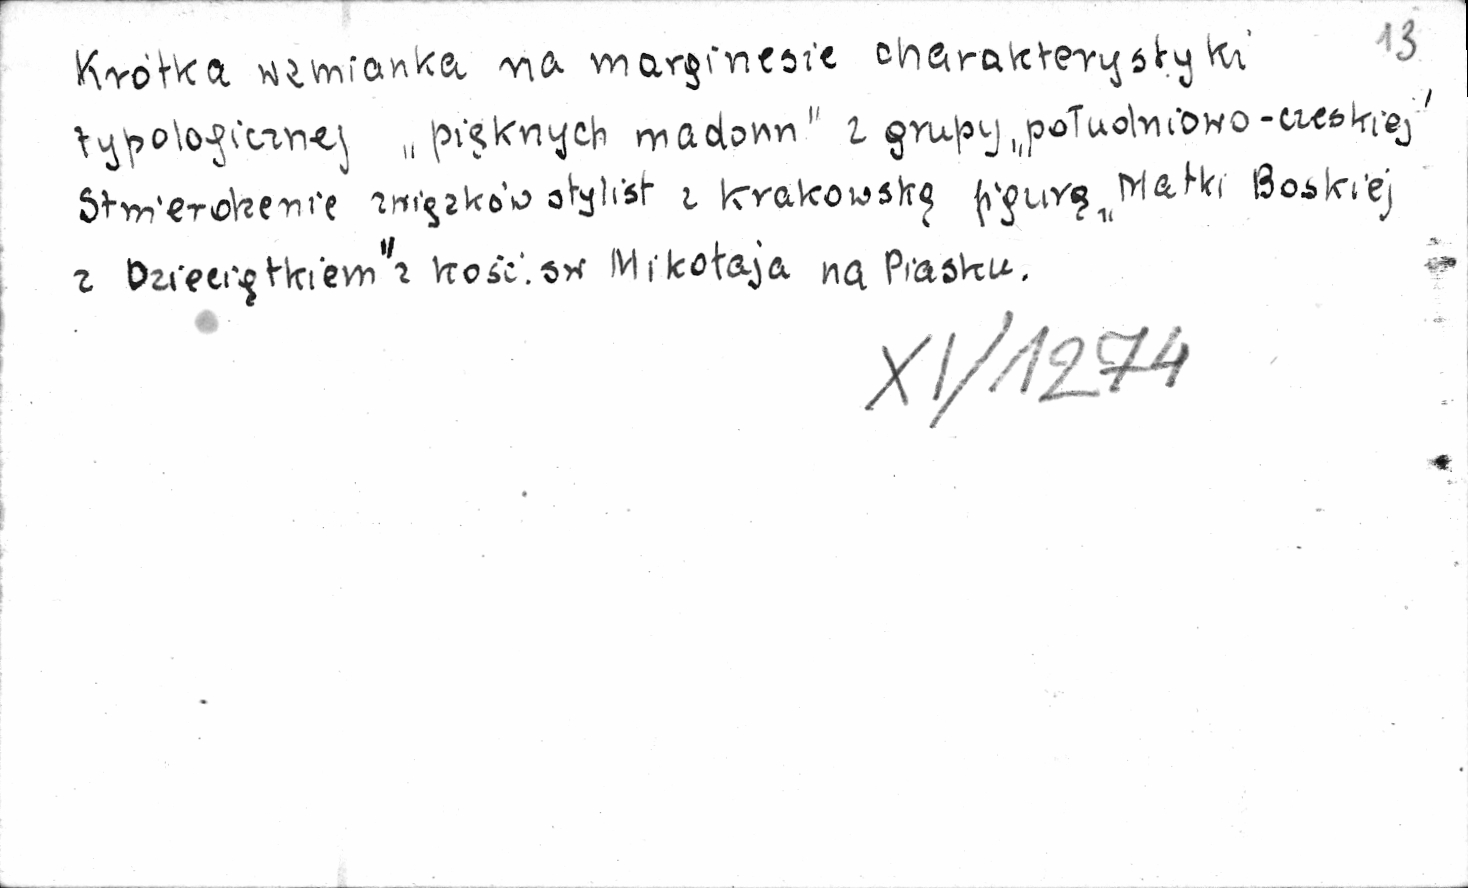 13
Krótka wzmianka na marginesie charakterystyki
typologicznej „pięknych madonn" z grupy „południowo-czeskiej"
Stwierdzenie związków stylist z krakowską figurą „Matki Boskiej
z Dzieciątkiem" z kość. św Mikołaja na Piasku.
XI/1274